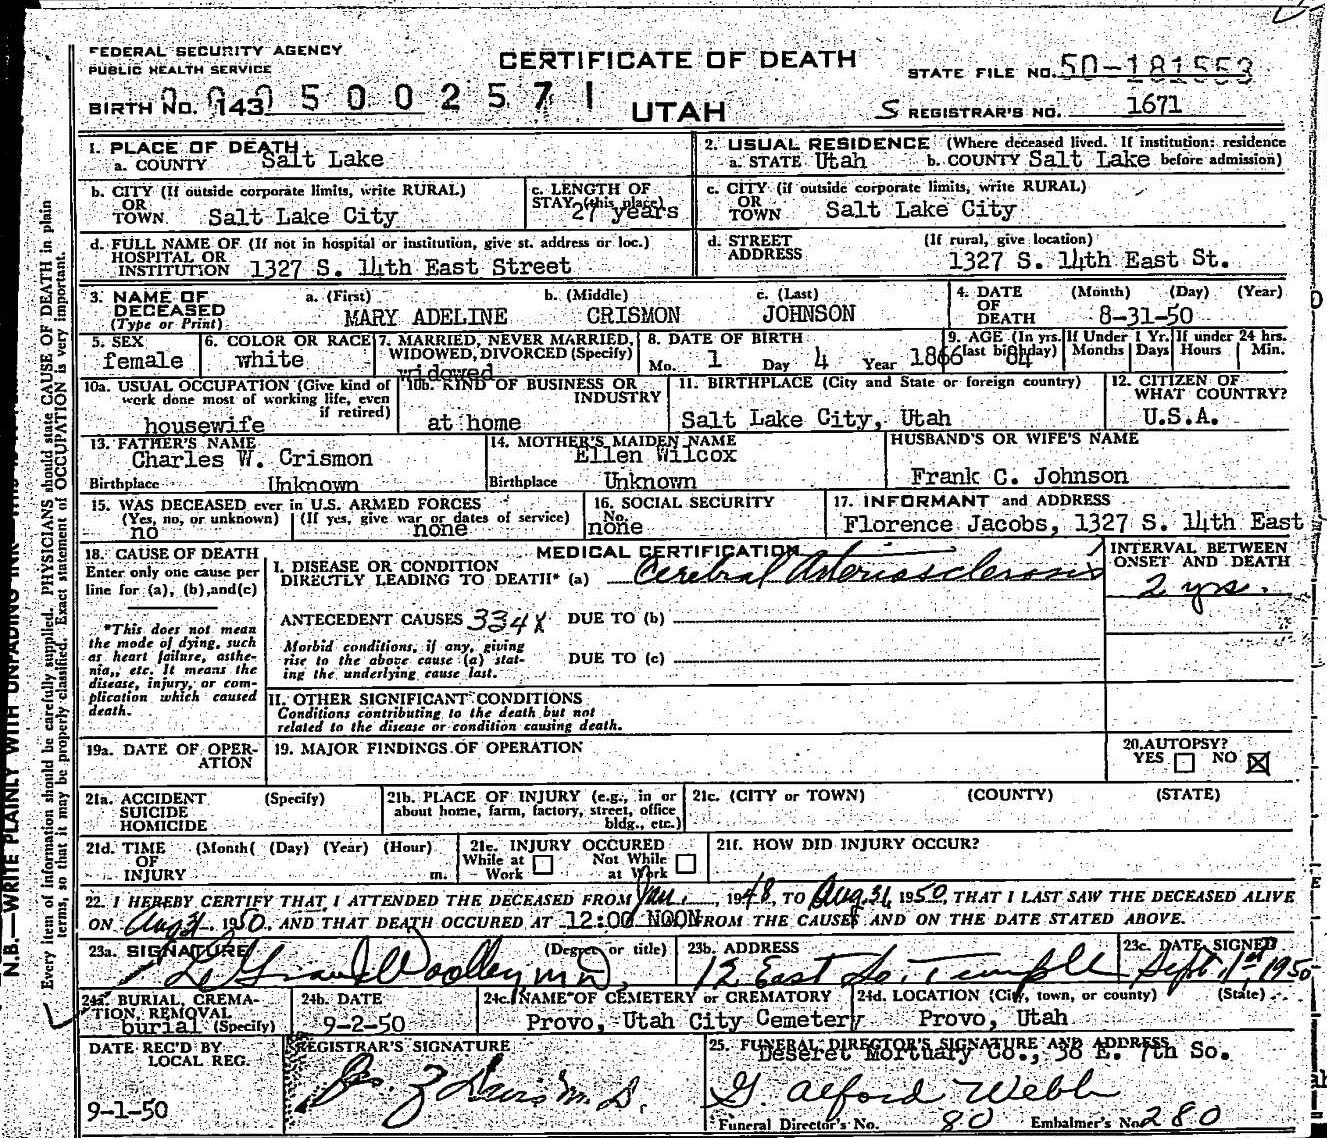 FEDERAL SECURITY AGENCY
PUBLIC HEALTH SERVICE
CERTIFICATE OF DEATH
STATE FILE NO. 50-181553
BIRTH NO. 143 500 2571
UTAH
S REGISTRAR'S NO. 1671
1. PLACE OF DEATH
a. COUNTY Salt Lake
2. USUAL RESIDENCE (Where deceased lived. If institution: residence before admission)
a. STATE Utah b. COUNTY Salt Lake
b. CITY (If outside corporate limits, write RURAL)
OR
TOWN Salt Lake City
c. LENGTH OF
STAY (this place)
27 years
c. CITY (if outside corporate limits, write RURAL)
OR
TOWN Salt Lake City
d. FULL NAME OF (If not in hospital or institution, give st. address or loc.)
HOSPITAL OR
INSTITUTION 1327 S. 14th East Street
d. STREET (If rural, give location)
ADDRESS 1327 S. 14th East St.
3. NAME OF
DECEASED
(Type or Print)
a. (First) b. (Middle) c. (Last)
MARY ADELINE CRISMON JOHNSON
4. DATE (Month) (Day) (Year)
OF
DEATH 8-31-50
5. SEX
female
6. COLOR OR RACE
white
7. MARRIED, NEVER MARRIED,
WIDOWED, DIVORCED (Specify)
widowed
8. DATE OF BIRTH
Mo. 1 Day 4 Year 1866
9. AGE (In yrs. last birthday) 84
If Under 1 Yr.
Months Days
If under 24 hrs.
Hours Min.
10a. USUAL OCCUPATION (Give kind of
work done most of working life, even
if retired)
housewife
10b. KIND OF BUSINESS OR
INDUSTRY
at home
11. BIRTHPLACE (City and State or foreign country)
Salt Lake City, Utah
12. CITIZEN OF
WHAT COUNTRY?
U.S.A.
13. FATHER'S NAME
Charles W. Crismon
Birthplace Unknown
14. MOTHER'S MAIDEN NAME
Ellen Wilcox
Birthplace Unknown
HUSBAND'S OR WIFE'S NAME
Frank C. Johnson
15. WAS DECEASED ever in U.S. ARMED FORCES
(Yes, no, or unknown) (If yes, give war or dates of service)
no none
16. SOCIAL SECURITY
No.
none
17. INFORMANT and ADDRESS
Florence Jacobs, 1327 S. 14th East
18. CAUSE OF DEATH
Enter only one cause per
line for (a), (b), and(c)
*This does not mean
the mode of dying, such
as heart failure, asthe-
nia,, etc. It means the
disease, injury, or com-
plication which caused
death.
MEDICAL CERTIFICATION
I. DISEASE OR CONDITION
DIRECTLY LEADING TO DEATH* (a) Cerebral Arteriosclerosis
INTERVAL BETWEEN
ONSET AND DEATH
2 yrs.
ANTECEDENT CAUSES 334X DUE TO (b)
Morbid conditions, if any, giving
rise to the above cause (a) stat-
ing the underlying cause last.
DUE TO (c)
II. OTHER SIGNIFICANT CONDITIONS
Conditions contributing to the death but not
related to the disease or condition causing death.
19a. DATE OF OPER-
ATION
19. MAJOR FINDINGS OF OPERATION
20. AUTOPSY?
YES NO
21a. ACCIDENT (Specify)
SUICIDE
HOMICIDE
21b. PLACE OF INJURY (e.g., in or
about home, farm, factory, street, office
bldg., etc.)
21c. (CITY or TOWN) (COUNTY) (STATE)
21d. TIME (Month( (Day) (Year) (Hour)
OF
INJURY m.
21e. INJURY OCCURED
While at Work Not While at Work
21f. HOW DID INJURY OCCUR?
22. I HEREBY CERTIFY THAT I ATTENDED THE DECEASED FROM Jan, 1948, TO Aug. 31, 1950, THAT I LAST SAW THE DECEASED ALIVE
ON Aug 31 1950, AND THAT DEATH OCCURED AT 12:00 NOON FROM THE CAUSES AND ON THE DATE STATED ABOVE.
23a. SIGNATURE (Degree or title)
Woolley M D,
23b. ADDRESS
12 East So. Temple
23c. DATE SIGNED
Sept. 1st 1950
24a. BURIAL, CREMA-
TION, REMOVAL
burial (Specify)
24b. DATE
9-2-50
24c. NAME OF CEMETERY or CREMATORY
Provo, Utah City Cemetery
24d. LOCATION (City, town, or county) (State)
Provo, Utah
DATE REC'D BY
LOCAL REG.
9-1-50
REGISTRAR'S SIGNATURE
M. D.
25. FUNERAL DIRECTOR'S SIGNATURE AND ADDRESS
Deseret Mortuary Co., 36 E. 7th So.
G. Alford Webb
Funeral Director's No. 80 Embalmer's No. 280
N.B.—WRITE PLAINLY WITH UNFADING INK
Every item of information should be carefully supplied. PHYSICIANS should state CAUSE OF DEATH in plain
terms, so that it may be properly classified. Exact statement of OCCUPATION is very important.